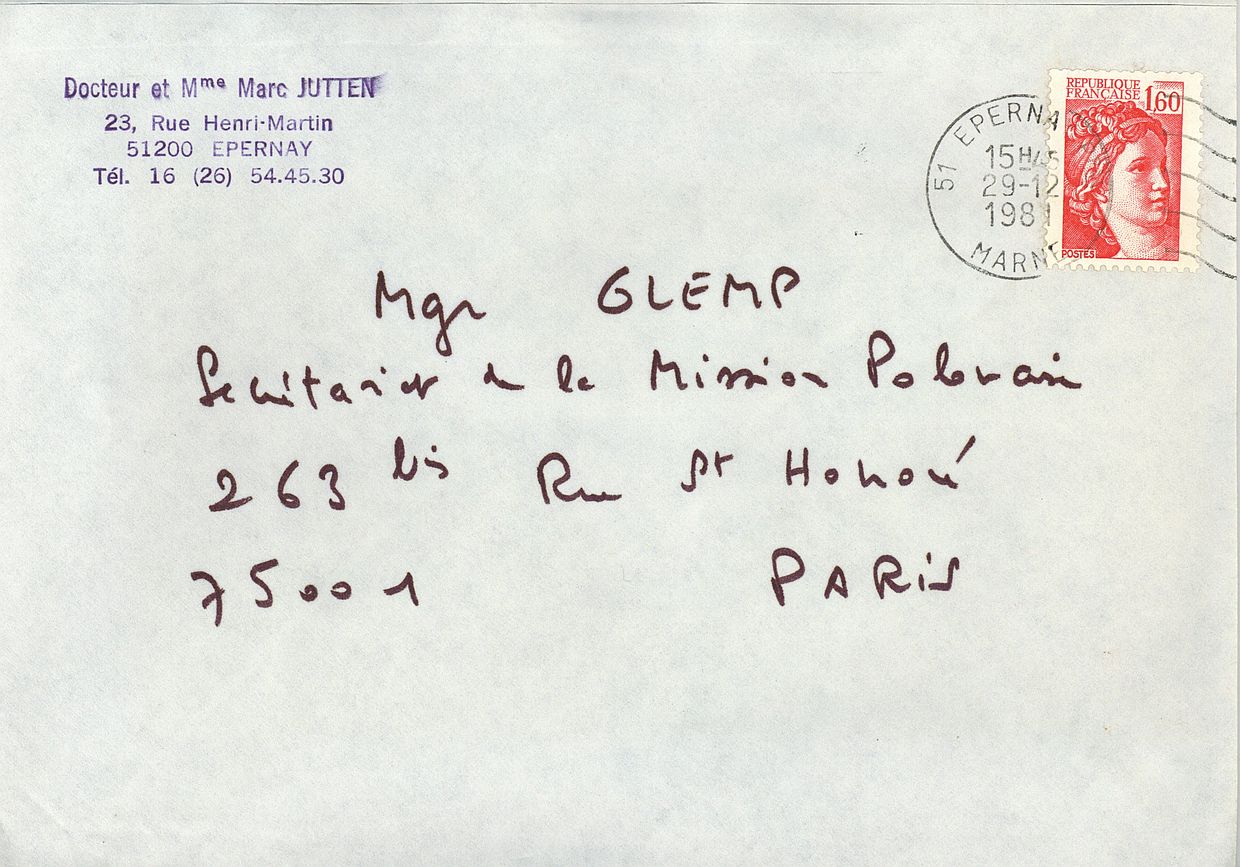 Docteur et Mme Marc JUTTEN
23, Rue Henri-Martin
51200 EPERNAY
Tél. 16 (26) 54.45.30
REPUBLIQUE
FRANÇAISE 1,60
POSTES
51 EPERNAY
15H45
29-12
1981
MARNE
Mgr GLEMP
Secrétariat de la Mission Polonaise
263 bis Rue St Honoré
75001 PARIS